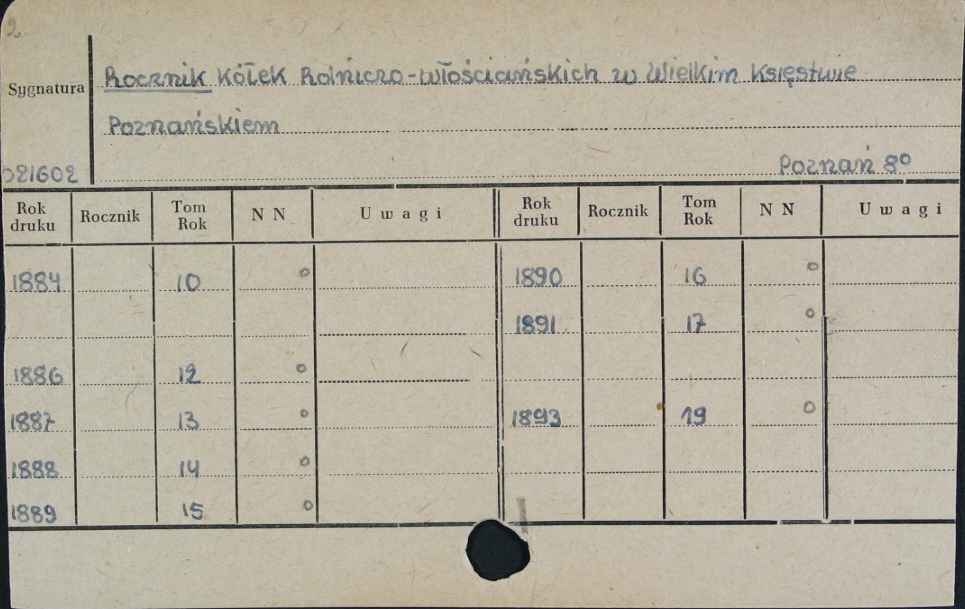 2.
Sygnatura
Rocznik Kółek Rolniczo-włościańskich w Wielkim Księstwie
Poznańskiem
021602
Poznań 8º
Rok druku Rocznik Tom Rok N N Uwagi Rok druku Rocznik Tom Rok N N Uwagi
1884 10 o 1890 16 o
1891 17 o
1886 12 o
1887 13 o 1893 19 o
1888 14 o
1889 15 o